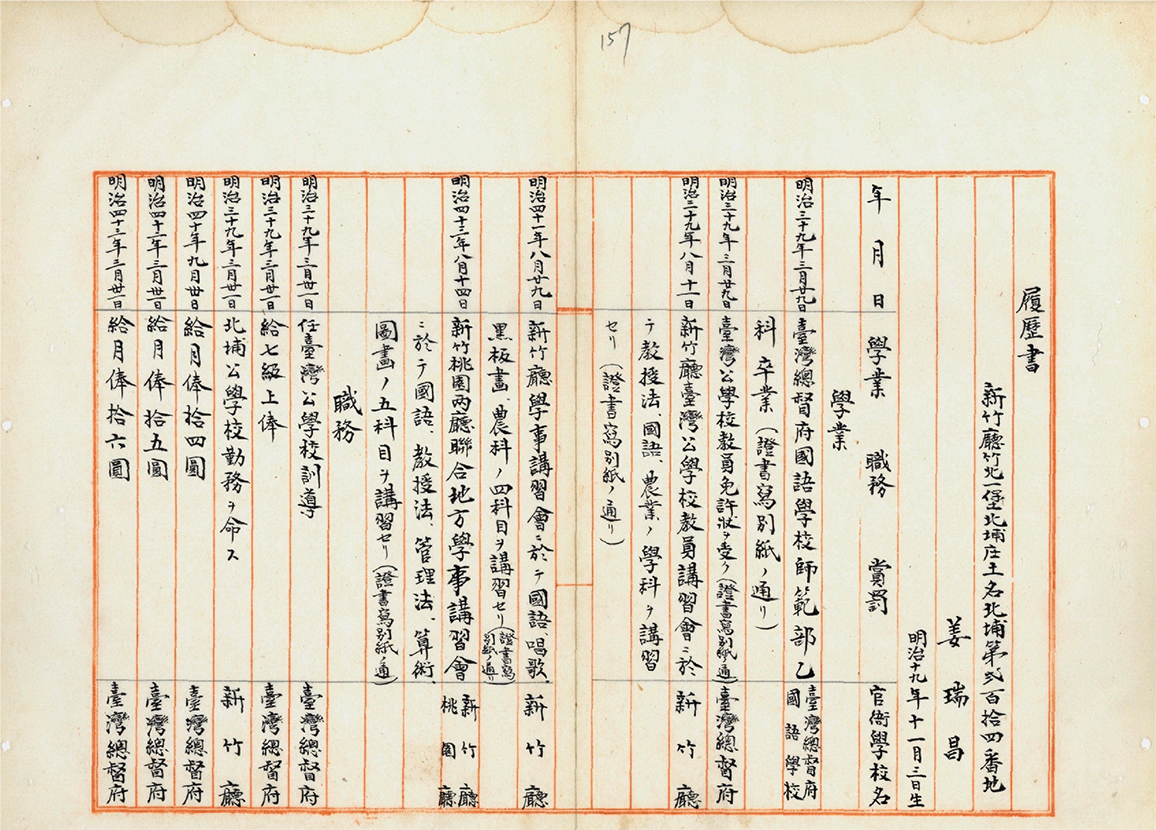 157
履歷書
新竹廳竹北一堡北埔庄土名北埔第弐百拾四番地
姜瑞昌
明治十九年十一月三日生
年月日 學業 職務 賞罰 官衙學校名
學業
明治三十九年三月廿九日 臺灣總督府國語學校師範部乙 臺灣總督府國語學校
科卒業(證書寫別紙ノ通リ)
明治三十九年三月廿九日 臺灣公學校教員免許狀ヲ受ク(證書寫別紙ノ通) 臺灣總督府
明治三十九年八月十一日 新竹廳臺灣公學校教員講習會ニ於 新竹廳
テ教授法、國語、農業ノ學科ヲ講習
セリ(證書寫別紙ノ通リ)
明治四十一年八月廿九日 新竹廳學事講習會ニ於テ國語、唱歌、 新竹廳
黑板畫、農科ノ四科目ヲ講習セリ(證書寫別紙ノ通リ)
明治四十三年八月十四日 新竹桃園兩廳聯合地方學事講習會 新竹廳桃園廳
ニ於テ國語、教授法、管理法、算術、
圖畫ノ五科目ヲ講習セリ(證書寫別紙ノ通)
職務
明治三十九年三月卅一日 任臺灣公學校訓導 臺灣總督府
明治三十九年三月卅一日 給七級上俸 臺灣總督府
明治三十九年三月卅一日 北埔公學校勤務ヲ命ス 新竹廳
明治四十年九月卅日 給月俸拾四圓 臺灣總督府
明治四十二年三月卅一日 給月俸拾五圓 臺灣總督府
明治四十三年三月卅一日 給月俸拾六圓 臺灣總督府